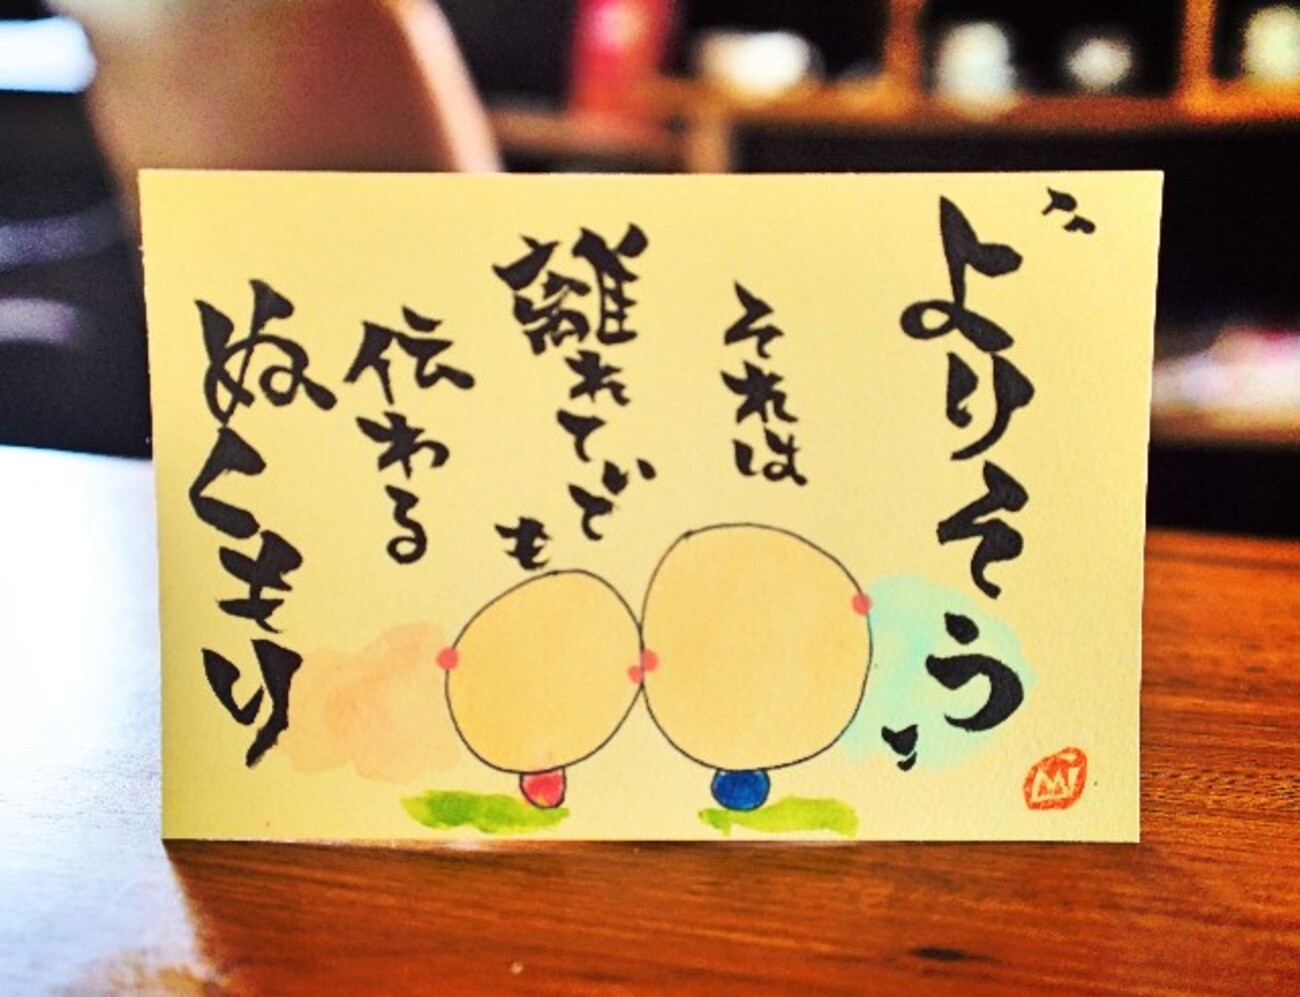 〝よりそう〟
それは
離れていでも
伝わる
ぬくもり